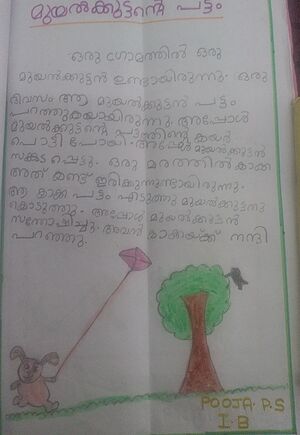 മുയൽക്കുട്ടൻ്റെ പട്ടം
ഒരു ഗ്രാമത്തിൽ ഒരു
മുയൽക്കുട്ടൻ ഉണ്ടായിരുന്നു. ഒരു
ദിവസം ആ മുയൽക്കുട്ടൻ പട്ടം
പറത്തുകയായിരുന്നു. അപ്പോൾ
മുയൽക്കുട്ടൻ്റെ പട്ടത്തിൻ്റെ കയർ
പൊട്ടി പോയി. അപ്പോൾ മുയൽക്കുട്ടൻ
സങ്കടപ്പെട്ടു. ഒരു മരത്തിൽ കാക്ക
അത് കണ്ട് ഇരിക്കുന്നുണ്ടായിരുന്നു.
ആ കാക്ക പട്ടം എടുത്തു മുയൽക്കുട്ടനു
കൊടുത്തു. അപ്പോൾ മുയൽക്കുട്ടൻ
സന്തോഷിച്ചു. അവൻ കാക്കയ്ക്ക് നന്ദി
പറഞ്ഞു.
POOJA. P.S
I. B